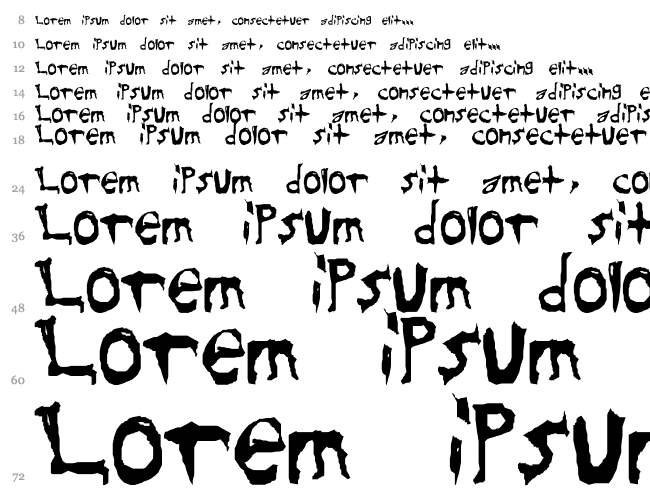 8 Lorem ipsum dolor sit amet, consectetuer adipiscing elit...
10 Lorem ipsum dolor sit amet, consectetuer adipiscing elit...
12 Lorem ipsum dolor sit amet, consectetuer adipiscing elit...
14 Lorem ipsum dolor sit amet, consectetuer adipiscing e
16 Lorem ipsum dolor sit amet, consectetuer adipis
18 Lorem ipsum dolor sit amet, consectetuer
24 Lorem ipsum dolor sit amet, co
36 Lorem ipsum dolor sit
48 Lorem ipsum dolo
60 Lorem ipsum
72 Lorem ipsum